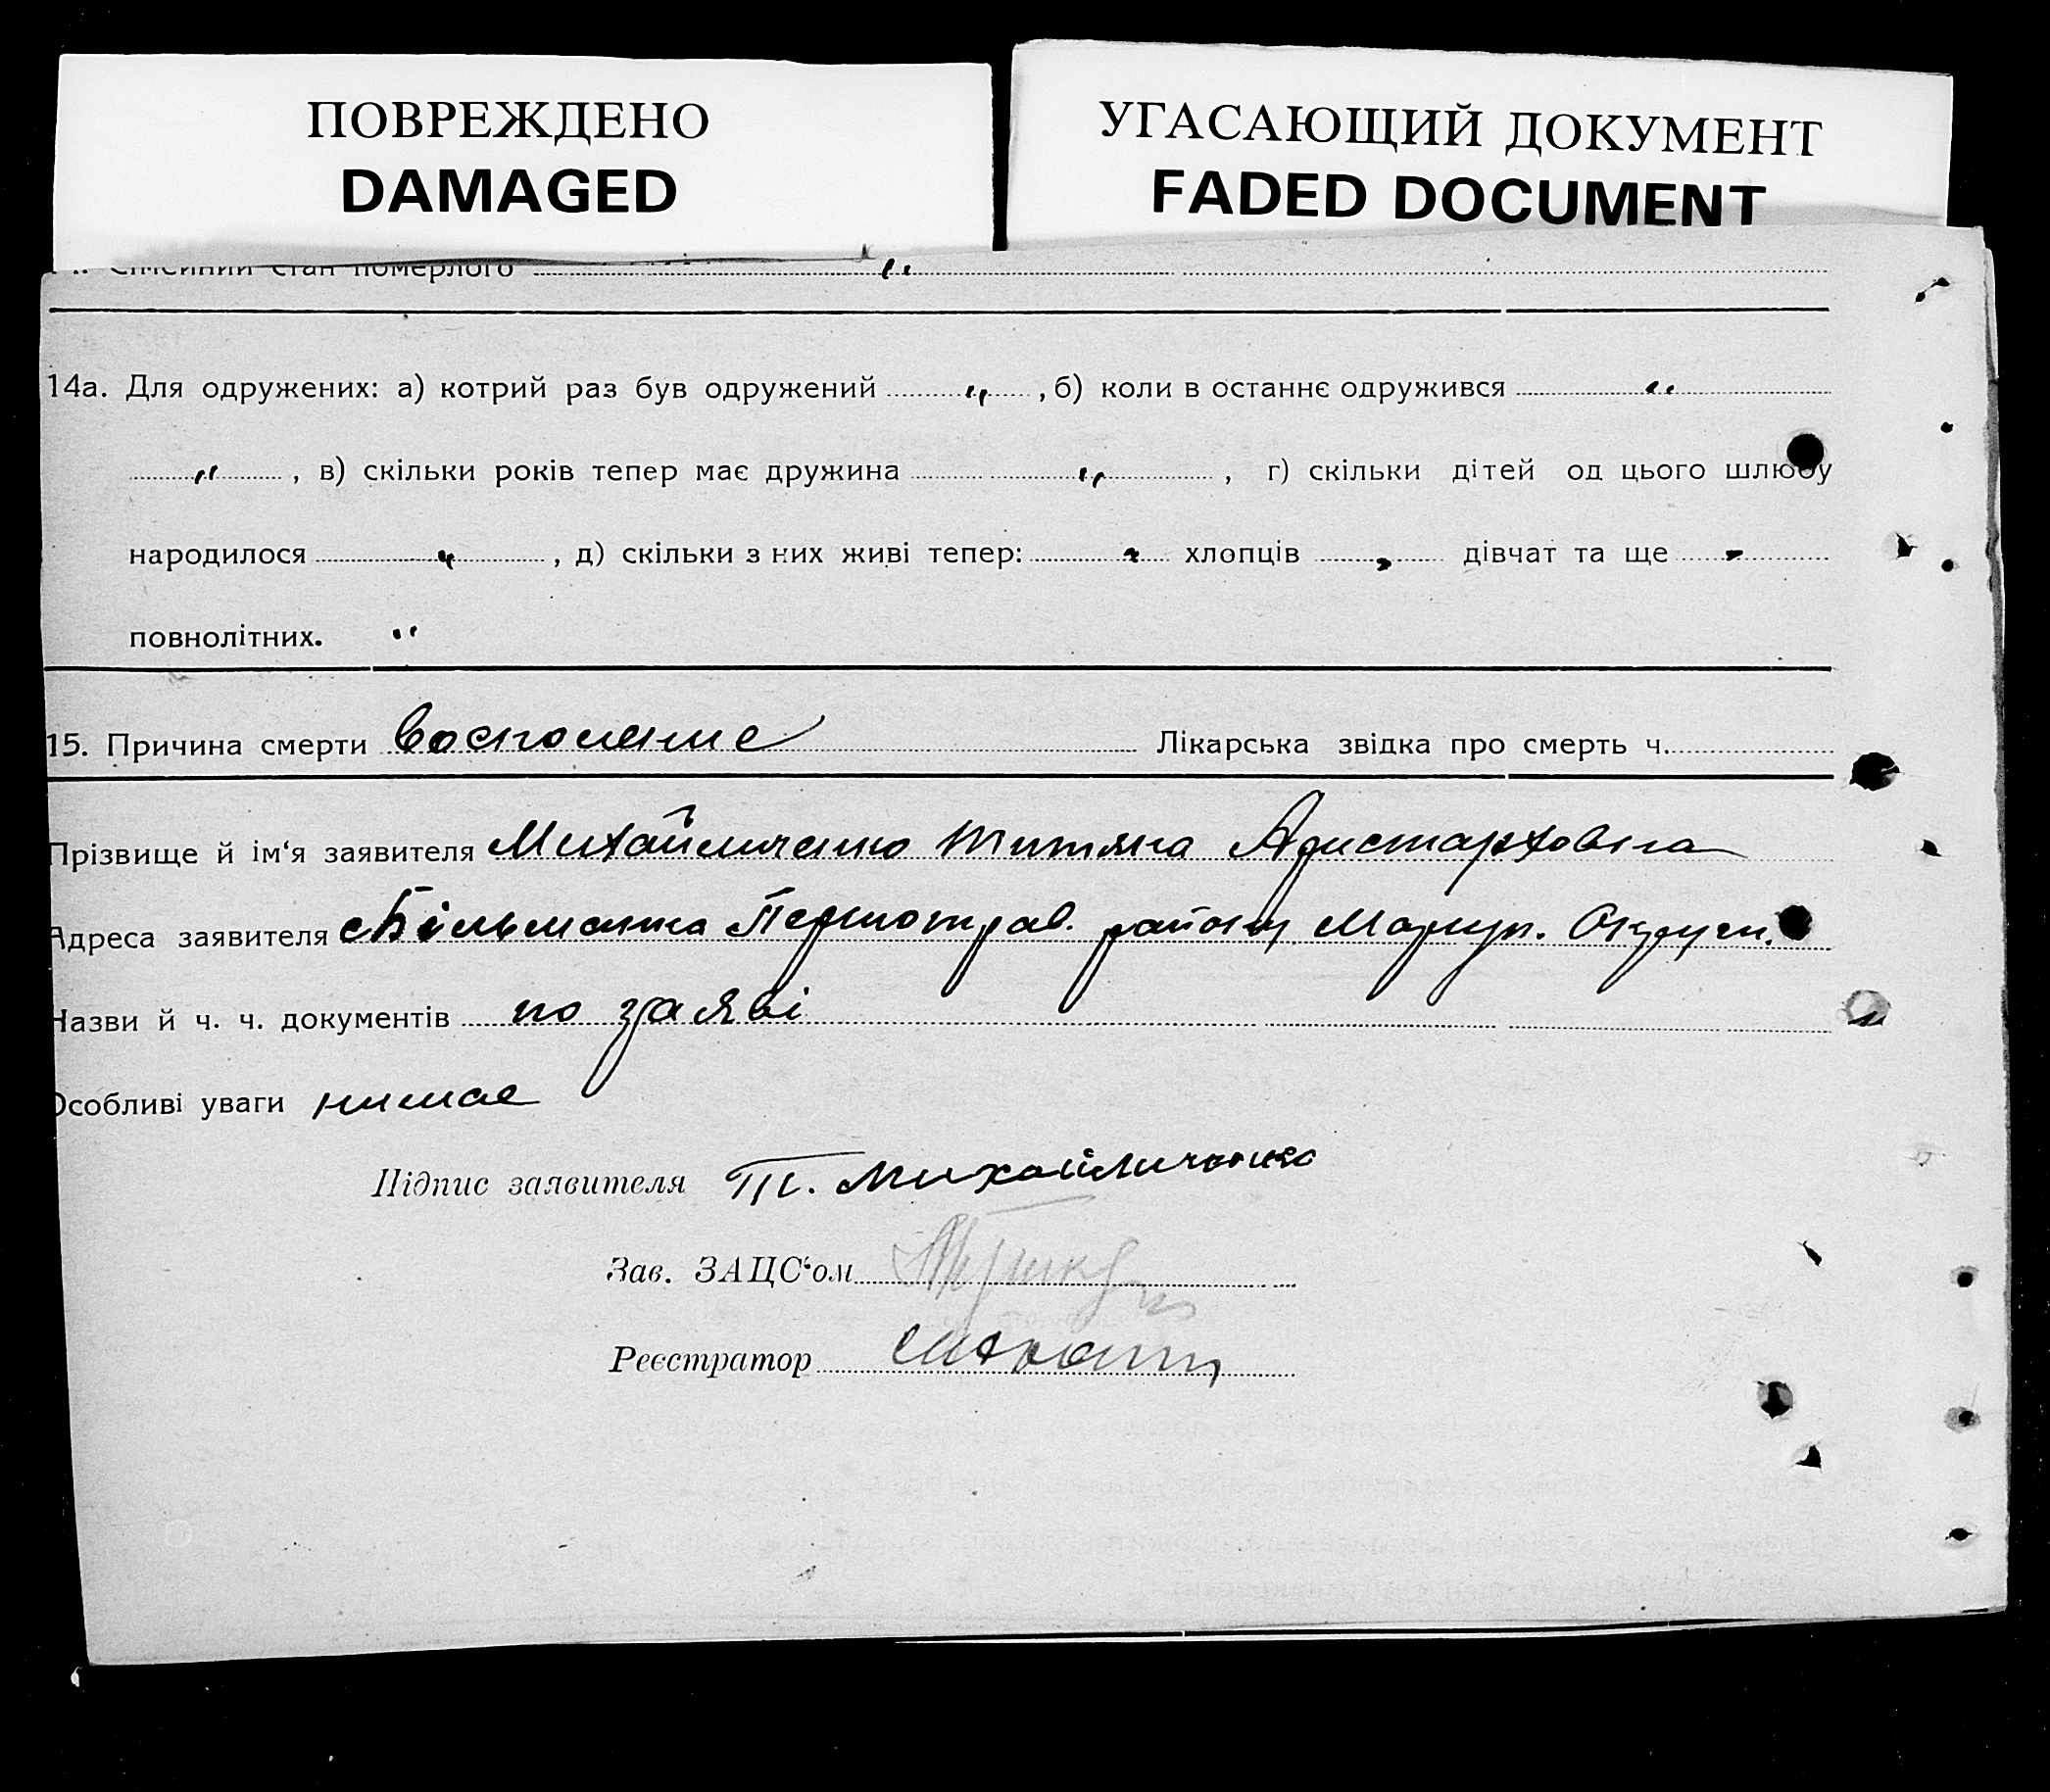 ПОВРЕЖДЕНО
DAMAGED
УГАСАЮЩИЙ ДОКУМЕНТ
FADED DOCUMENT
Сімейний стан померлого "
14а. Для одружених: а) котрий раз був одружений " , б) коли в останнє одружився "
" , в) скільки років тепер має дружина " , г) скільки дітей од цього шлюбу
народилося " , д) скільки з них живі тепер: " хлопців " дівчат та ще "
повнолітних. "
15. Причина смерти Восполение Лікарська звідка про смерть ч.
Прізвище й ім'я заявителя Михайличенко Титяна Аристарховна
Адреса заявителя с Більманка Першотрав. району Маріуп. Округи.
Назви й ч. ч. документів по заяві
Особливі уваги нимае
Підпис заявителя Т. Михайличенко
Зав. ЗАЦС'ом
Реєстратор